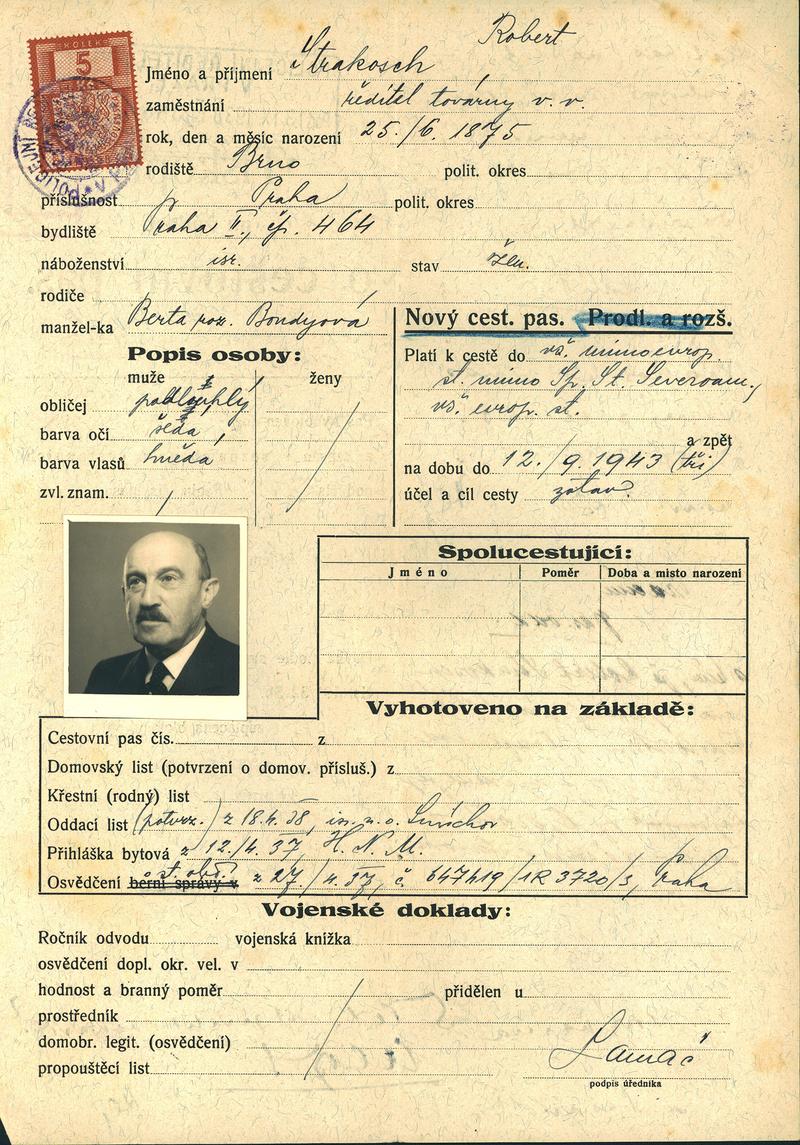 KOLEK
5
Robert
Jméno a příjmení Strakosch
zaměstnání ředitel továrny v. v.
rok, den a měsíc narození 25./6. 1875
rodiště Brno polit. okres
příslušnost Praha polit. okres
bydliště Praha II., čp. 464
náboženství isr. stav žen.
rodiče
manžel-ka Berta roz. Bondyová
Nový cest. pas. Prodl. a rozš.
Popis osoby:
muže ženy
obličej podlouhlý
barva očí šedá
barva vlasů hnědá
zvl. znam.
Platí k cestě do vš. mimoevrop.
st. mimo Sp. St. Severoam.,
vš. evrop. st.
a zpět
na dobu do 12./9. 1943 (tři)
účel a cíl cesty zotav.
Spolucestující:
Jméno Poměr Doba a misto narození
Vyhotoveno na základě:
Cestovní pas čís. z
Domovský list (potvrzení o domov. přísluš.) z
Křestní (rodný) list
Oddací list (potvrz.) z 18.4. 38, isr. n. o. Smíchov
Přihláška bytová z 12/4. 37 H. N. M.
Osvědčení berní správy v st. obč. z 27/4. 37, č. 647419/1R 3720/3, Praha
Vojenské doklady:
Ročník odvodu vojenská knížka
osvědčení dopl. okr. vel. v
hodnost a branný poměr přidělen u
prostředník
domobr. legit. (osvědčení)
propouštěcí list
podpis úředníka